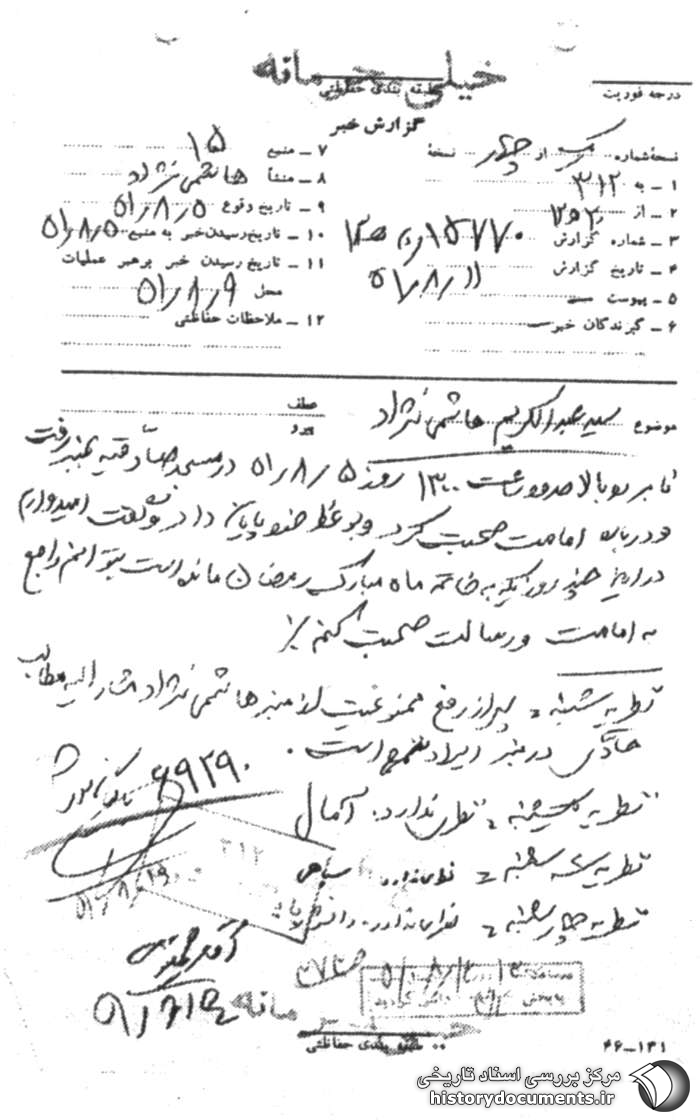 خیلی محرمانه
طبقه بندی حفاظتی
درجه فوریت
گزارش خبر
نسخهٔ شماره یک از چهار نسخهٔ
۱ ـ به ۳۱۲
۲ ـ از
۳ ـ شماره گزارش ۱۵۷۷۰
۴ ـ تاریخ گزارش ۵۱٫۸٫۱۱
۵ ـ پیوست
۶ ـ گیرندگان خبر
۷ ـ منبع ۱۵
۸ ـ منشأ هاشمی نژاد
۹ ـ تاریخ وقوع ۵۱٫۸٫۵
۱۰ ـ تاریخ رسیدن خبر به منبع ۵۱٫۸٫۵
۱۱ ـ تاریخ رسیدن خبر برهبر عملیات
محل ۵۱٫۸٫۹
۱۲ ـ ملاحظات حفاظتی
موضوع سید عبدالکریم هاشمی نژاد
عطف
پیرو
نامبرده بالا ساعت ۱۳۰۰ روز ۵۱٫۸٫۵ در مسجد صادقیه بمنبر رفت
و درباره امامت صحبت کرد و بوعظ خود پایان داد و گفت امیدوارم
در این چند روزیکه به خاتمه ماه مبارک رمضان مانده است بتوانم راجع
به امامت و رسالت صحبت کنم
نظریه شنبه ـ پس از رفع ممنوعیت از منبر هاشمی نژاد مشارالیه مطالب
حادی در منبر ایراد ننموده است.
نظریه یکشنبه ـ نظری ندارد. آمال
نظریه سه شنبه ـ نظری ندارد.
نظریه چهارشنبه ـ نظری ندارد.
۶۹۲۹۰
۳۱۲
خیلی محرمانه
طبقه بندی حفاظتی
۴۶ـ۱۳۱
مرکز بررسی اسناد تاریخی
historydocuments.ir